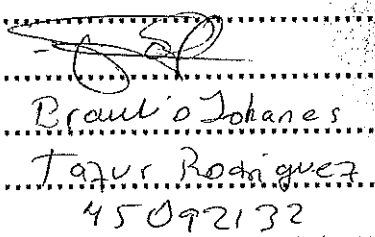 Braulio Johanes
Tazur Rodriguez
45092132